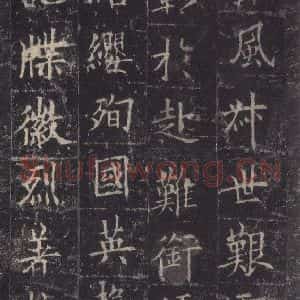 風叔世艱
彰於赴難銜
纓殉國英
記牒徽烈著
Shufawang.CN